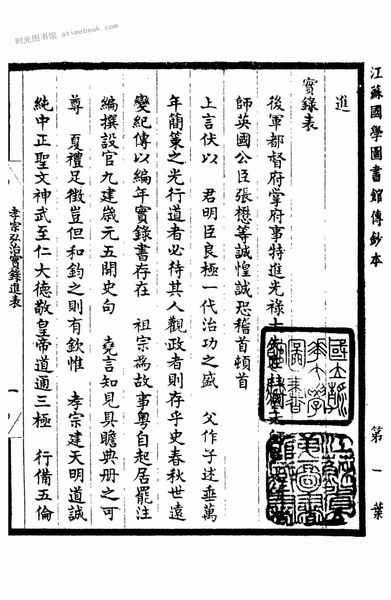 时光图书馆 atimebook.com
江蘇國學圖書館傳鈔本
第一葉
進
實錄表
後軍都督府掌府事特進光祿大
師英國公臣張懋等誠惶誠恐稽首頓首
上言伏以 君明臣良極一代治功之盛 父作子述垂萬
年簡策之光行道者必待其人觀政者則存乎史春秋世遠
變紀傳以編年實錄書存在 祖宗為故事粵自起居罷注
編撰設官九建歲元五開史句 堯言知見具瞻典册之可
尊 夏禮足徵豈但和鈞之則有欽惟 孝宗建天明道誠
純中正聖文神武至仁大德敬皇帝道通三極 行備五倫
孝宗弘治實錄進表
一
國立
大學
圖書